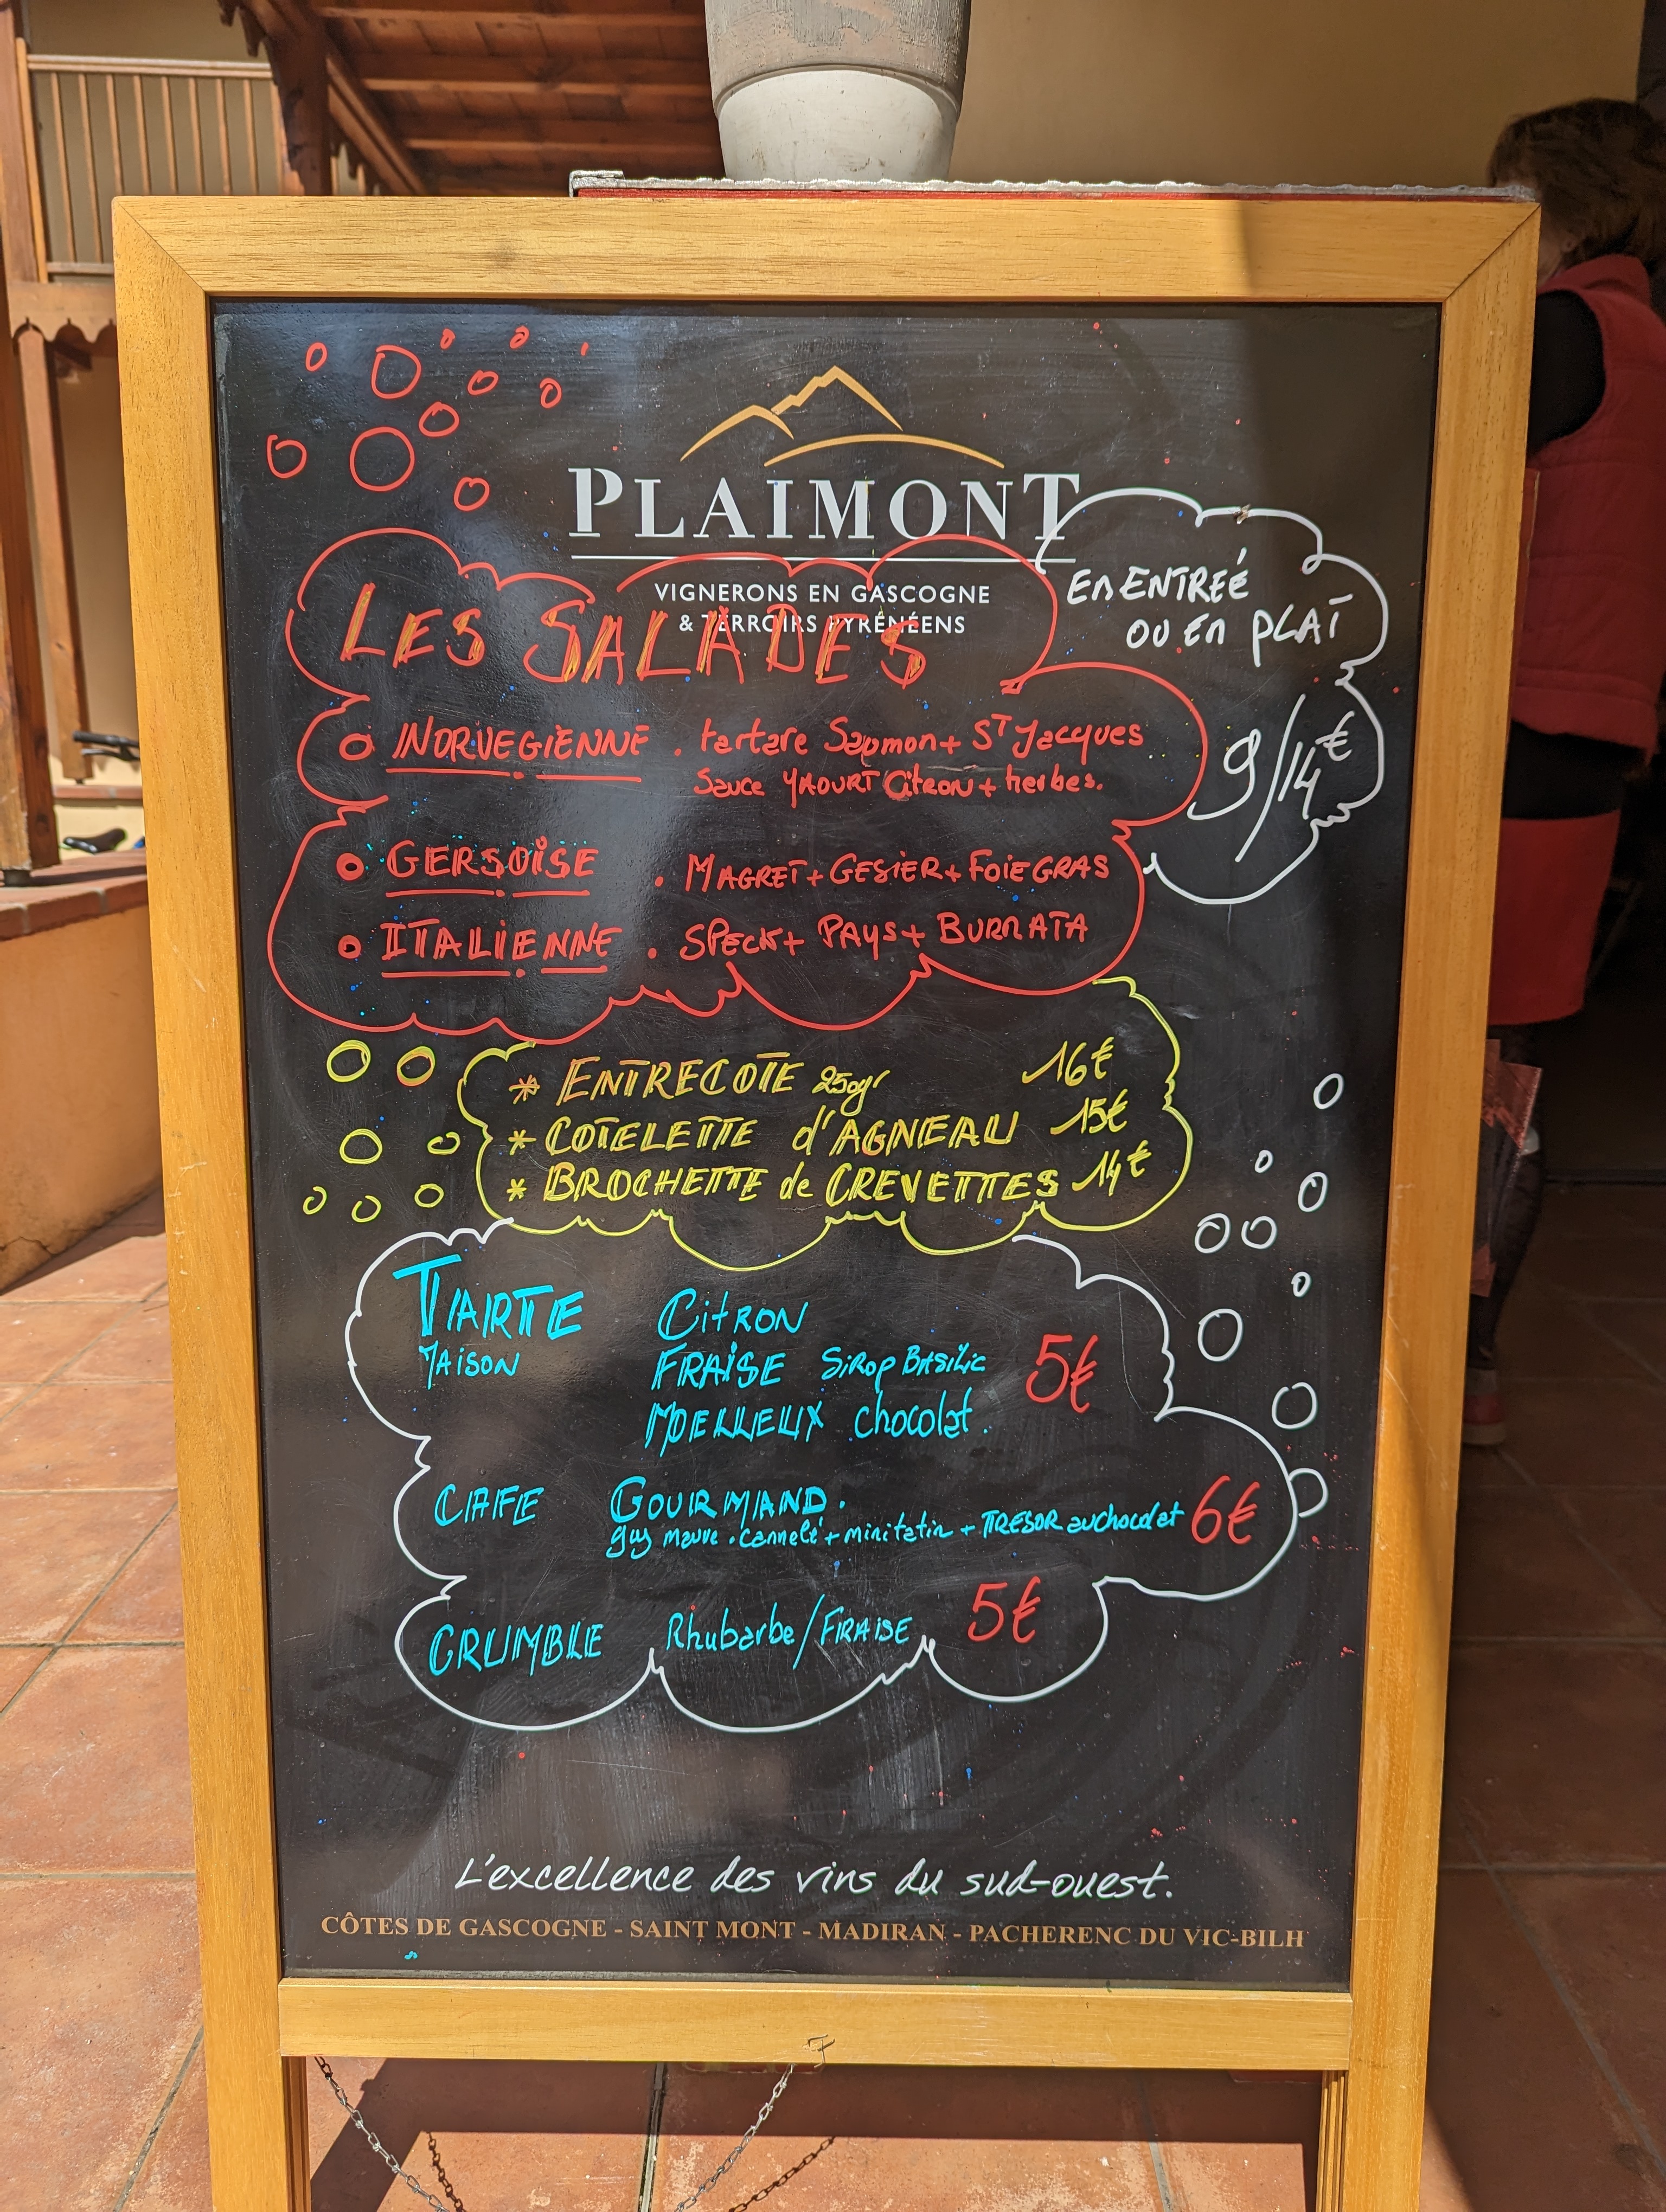 PLAIMONT
VIGNERONS EN GASCOGNE
& TERROIRS PYRÉNÉENS
En ENTREÉ
OU En PLAT
9/14€
LES SALADES
NORVEGIENNE . tartare Saumon + ST Jacques
Sauce YAOURT Citron + herbes.
GERSOISE . MAGRET + GESIER + FOIE GRAS
ITALIENNE . SPECK + PAYS + BURRATA
* ENTRECOTE 250gr 16€
* COTELETTE d'AGNEAU 15€
* BROCHETTE de CREVETTES 14€
TARTE Citron
MAISON FRAISE SiROP BASiLic 5€
MOELLEUX chocolat.
CAFE GOURMAND. 6€
guy mauve . cannelé + mini tatin + TRESOR au chocolat
CRUMBLE Rhubarbe/FRAISE 5€
L'excellence des vins du sud-ouest.
CÔTES DE GASCOGNE - SAINT MONT - MADIRAN - PACHERENC DU VIC-BILH